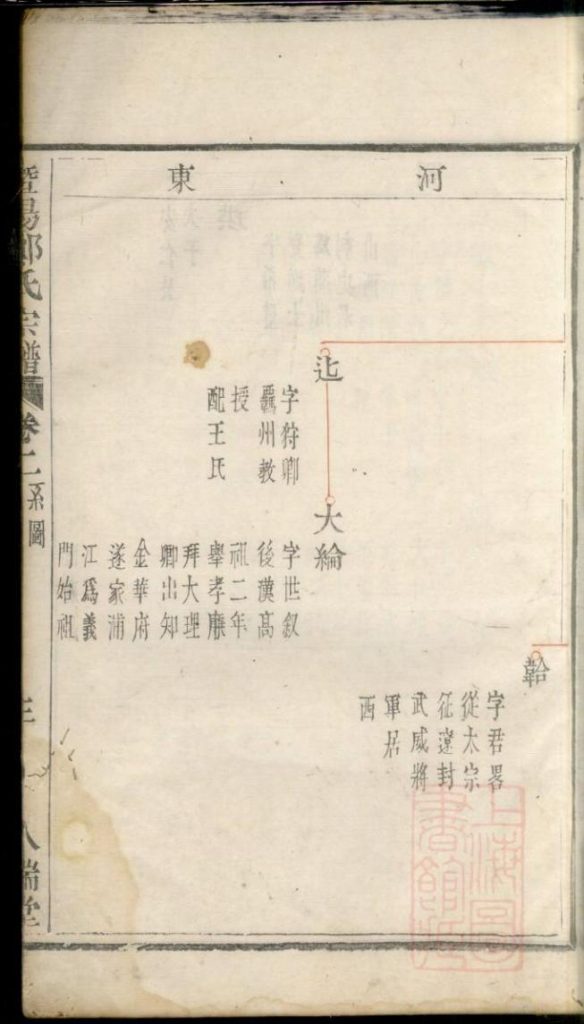 河東
韐
字君畧
從太宗
征遼封
武威將
軍居
西
字狩卿
覇州教
授
配王氏
大綸
字世叙
後漢高
祖二年
舉孝廉
拜大理
卿出知
金華府
遂家浦
江爲義
門始祖
暨陽氏宗譜 卷二 系圖 三 八瑞堂
上海圖
書館藏